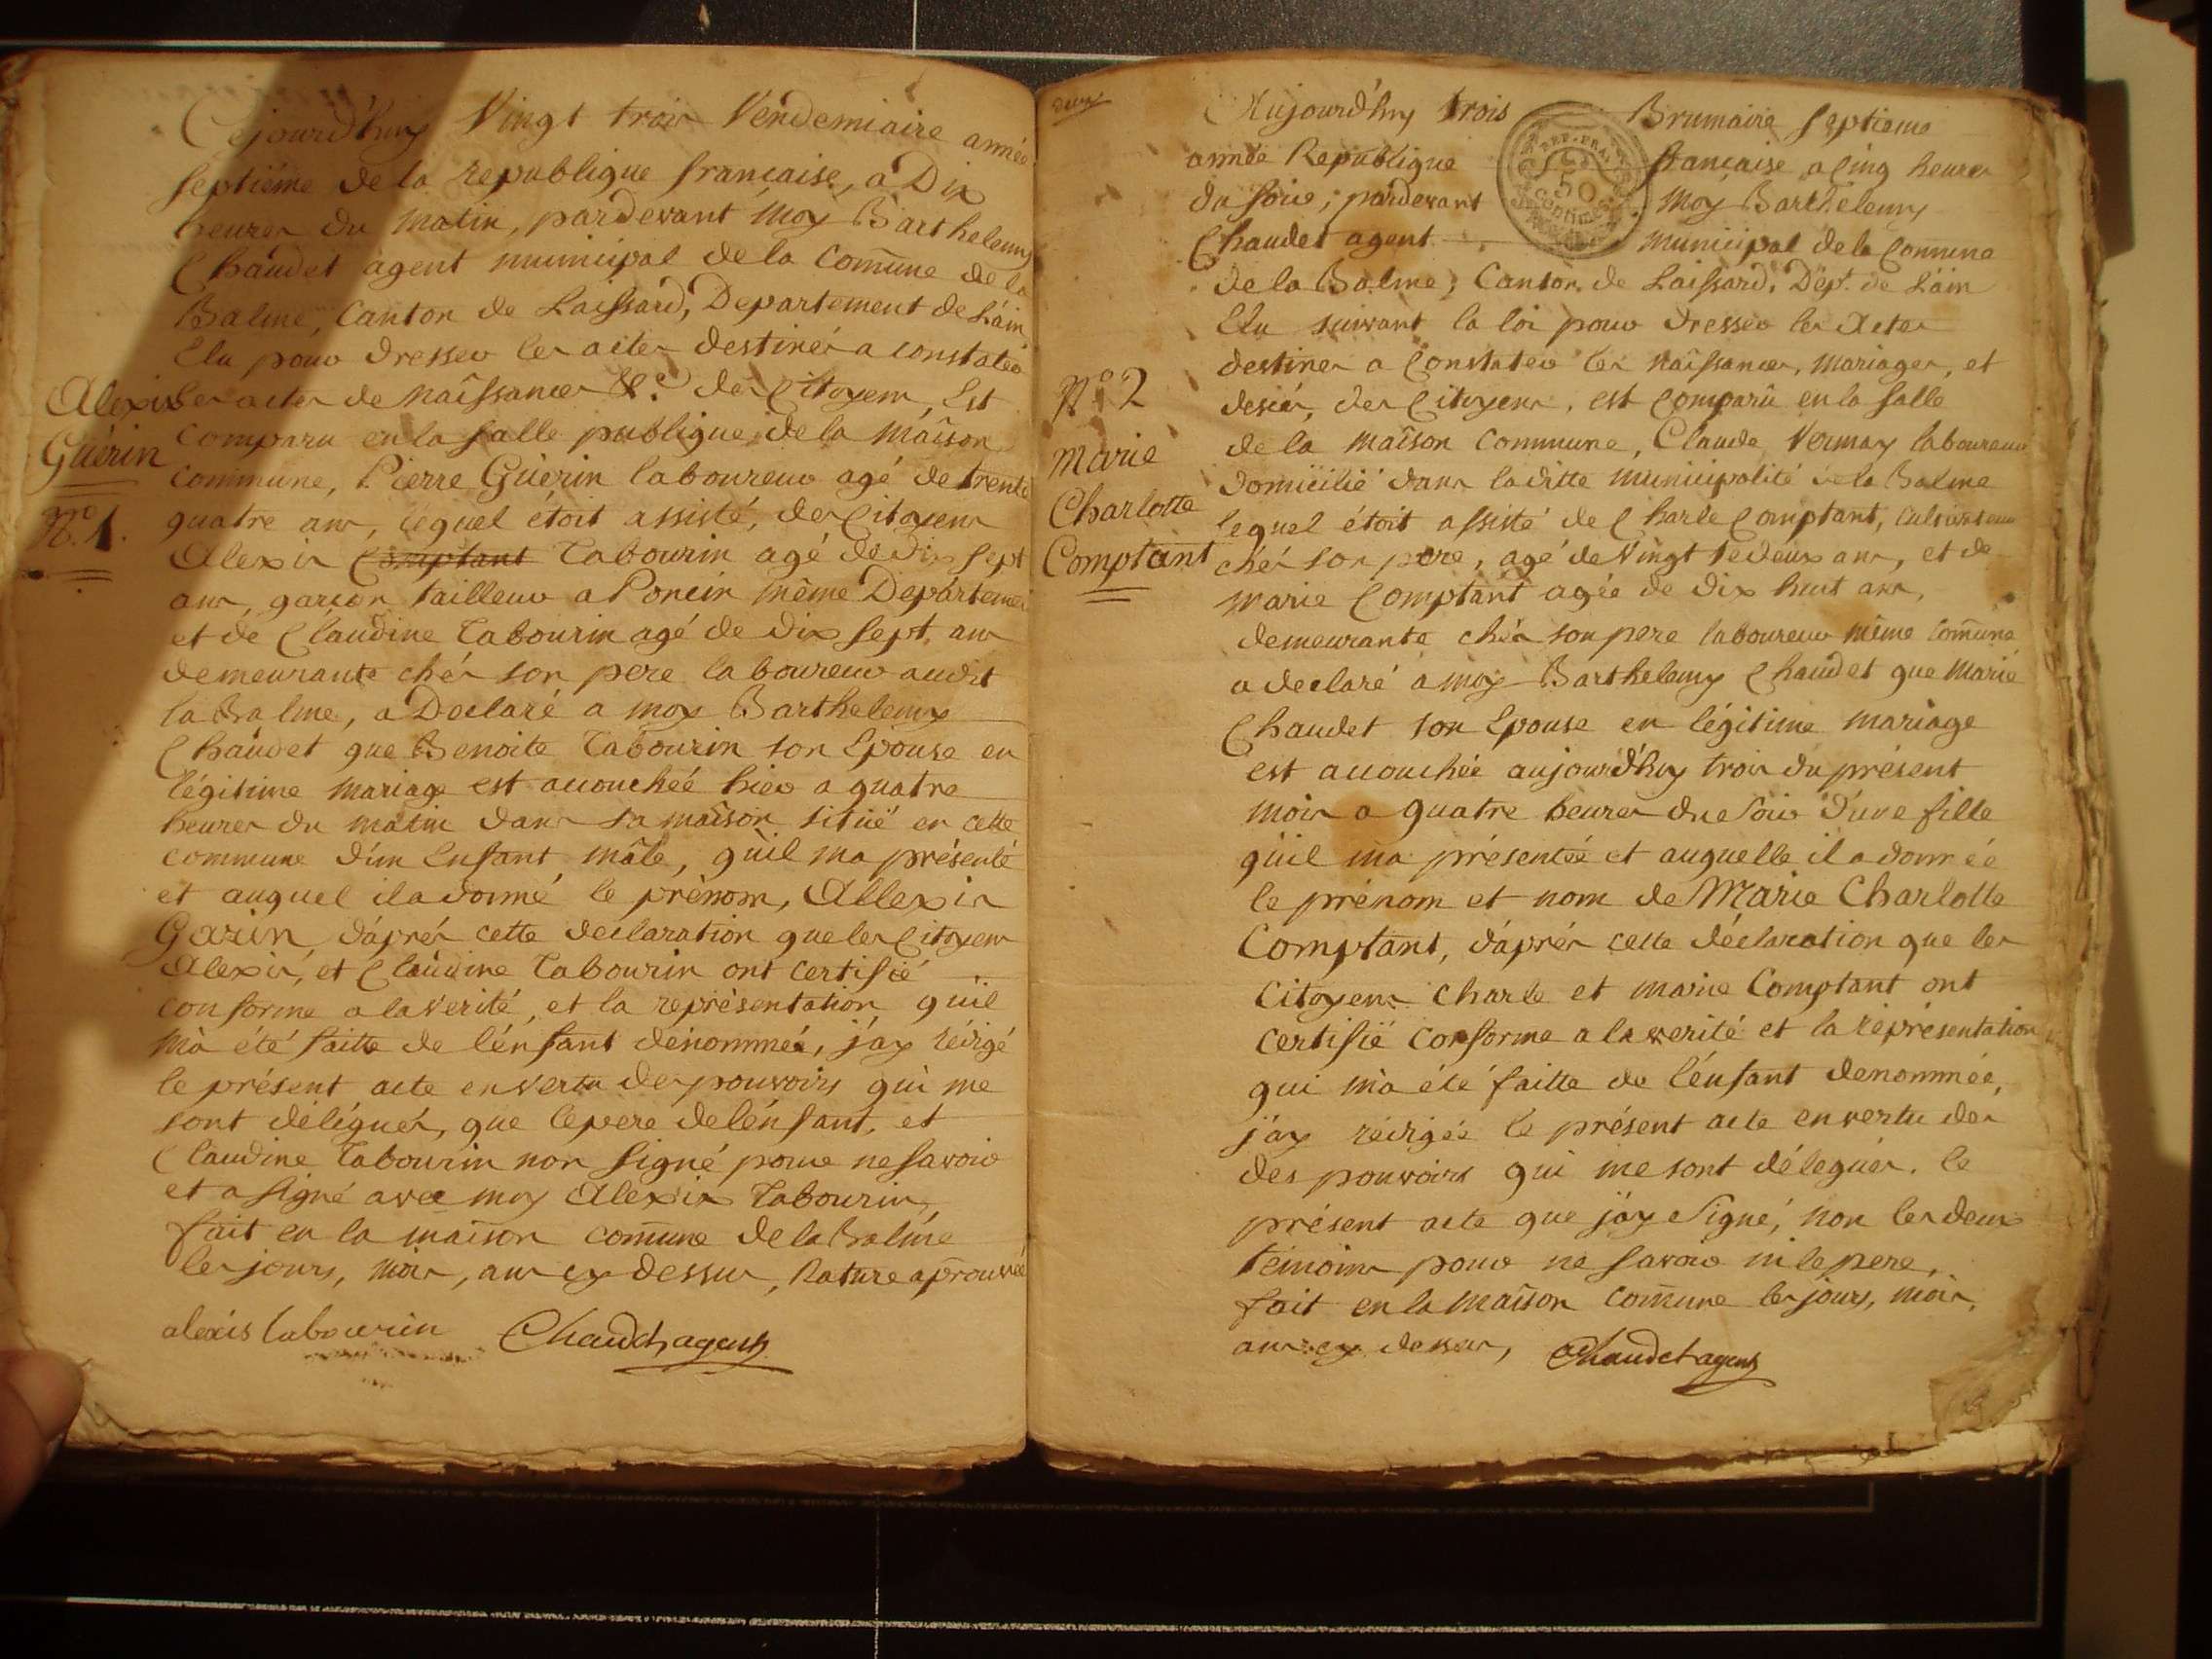 Cejourd'huy Vingt trois Vendemiaire année
septiême de la republique française, a Dix
heures du matin, pardevant moy Barthelemy
Chaudet agent municipal de la com̄une de la
Balme, Canton de Laissard, Departement de L'ain
Elu pour dresser les actes destinés a constater
les actes de naîssances &c. des Citoyens, Est
Alexis
Guérin
N.o 1.
comparu en la salle publique de la maîson
commune, Pierre Guérin laboureur agé de trente
quatre ans, lequel étoit assisté, des Citoyens
Alexis Comptant Tabourin agé de dix sept
ans, garson tailleur a Poncin même Departement
et de Claudine Tabourin agé de dix sept ans
demeurante chés son pere laboureur audit
la Balme, a Declaré a moy Barthelemy
Chaudet que Benoite Tabourin son Epouse en
légitime mariage est accouchée hier a quatre
heures du matin dans sa maîson sitüé en cette
commune d'un Enfant mâle, qu'il ma présenté
et auquel il a donné le prénom, Allexis
Garin, d'aprés cette declaration que les Citoyens
Alexis, et Claudine Tabourin ont certifié
conforme a la Verité, et la représentation qu'il
m'a été faitte de l'énfant dénommée, j'ay rédigé
le présent acte en vertu des pouvoirs qui me
sont délégués, que le pere de l'énfant, et
Claudine Tabourin non signé pour ne savoir
et a signé avec moy Alexis Tabourin,
fait en la maîson com̄une de la Balme
les jours, mois, ans cy dessus, Rature aprouvée
alexis tabourin Chaudet agent
deux
Aujourd'huy trois Brumaire septieme
année Republique française a cinq heures
REP. FRA.
50
Centimes
du soir; pardevant moy Barthelemy
Chaudet agent municipal de la Commune
de la Balme, Canton de Laissard, Dept. de L'ain
Elu suivant la loi pour dresser les Actes
destines a Constater les naîssances, mariages, et
N.o 2
Marie
Charlotte
Comptant
desiés, des Citoyens, est comparu en la salle
de la maîson commune, Claude Vermay laboureur
domicilié dans laditte municipalité de la Balme
lequel étoit assisté de Charle Comptant, cultivateur
chés son pere, agé de Vingt de deux ans, et de
marie Comptant agée de dix huit ans,
demeurante chés son pere laboureur même com̄une
a declaré a moy Barthelemy Chaudet que Marie
Chaudet son Epouse en légitime mariage
est accouchée aujourd'huy trois du présent
mois a quatre heures due soir d'une fille
qu'il m'a présentée et auquelle il a donnée
le prénom et nom de Marie Charlotte
Comptant, d'aprés cette déclaration que les
Citoyens Charle et marie Comptant ont
certifié conforme a la verité et la représentation
qui m'a été faitte de l'énfant denommée,
j'ay rédigée le présent acte en vertu des
des pouvoirs qui me sont délégués. le
présent acte que j'ay signé, non les deux
témoins pour ne savoir ni le pere,
fait en la maîson com̄une les jours, mois,
ans cy dessus, Chaudet agent